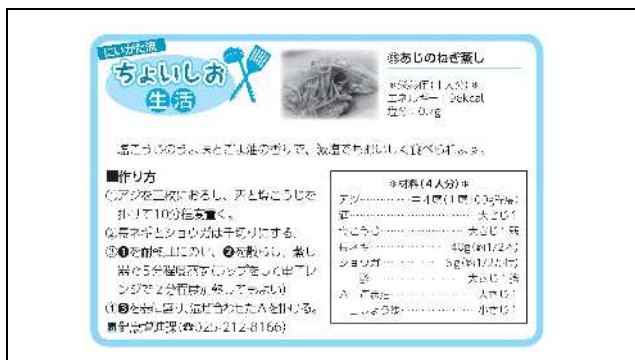 にいがた流
ちょいしお
生活
あじのねぎ蒸し
(1人分)*
エネルギー:96kcal
塩分:0.7g
塩こうじのうま味とごま油の香りで、減塩でもおいしく食べられます。
■作り方
①アジを三枚におろし、酒と塩こうじを
掛けて10分程度置く。
②長ネギとショウガは千切りにする。
③❶を耐熱皿にのせ、❷を散らし、蒸し
器で5分程度蒸す(ラップをして電子レ
ンジで2分程度加熱してもよい)
④❸を器に盛り、混ぜ合わせたAを掛ける。
健康増進課(☎025-212-8166)
*材料(4人分)*
アジ
酒 大さじ1
塩こうじ 大さじ1弱
長ネギ 40g(約1/2本)
ショウガ 5g
酢 大さじ1弱
A ごま油 大さじ1
しょうゆ 小さじ1